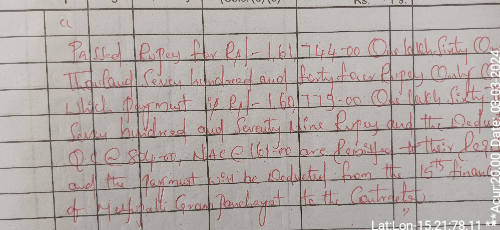 Passed Rupey for Rs/- 1,61,744-00 One lakh Sixty On
Thousand Seven hundred and forty four Rupey Only
Which Payment is Rs/- 1,60,779-00 One lakh Sixty
Seven hundred and Seventy Nine Rupey and the Dedu
QC @ 804-00, NAC @ 161-00 are Remitted to their
and the Payment will be Deducted from the 15th finance
of Gram Panchayat to the Contractor
Lat:Lon 15.21:78.11